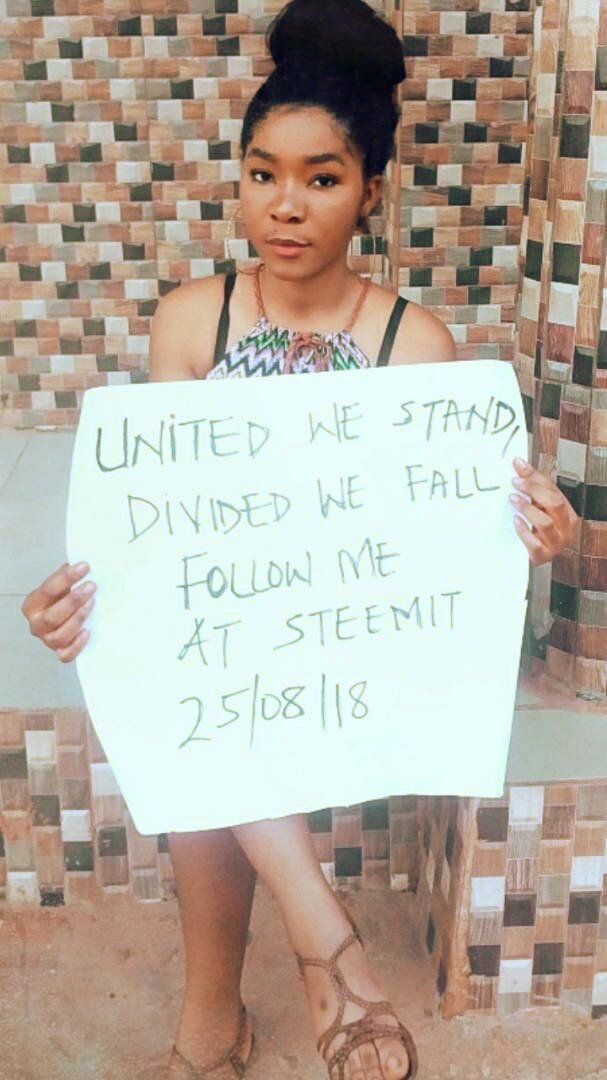 UNITED WE STAND,
DIVIDED WE FALL
FOLLOW ME
AT STEEMIT
25/08/18